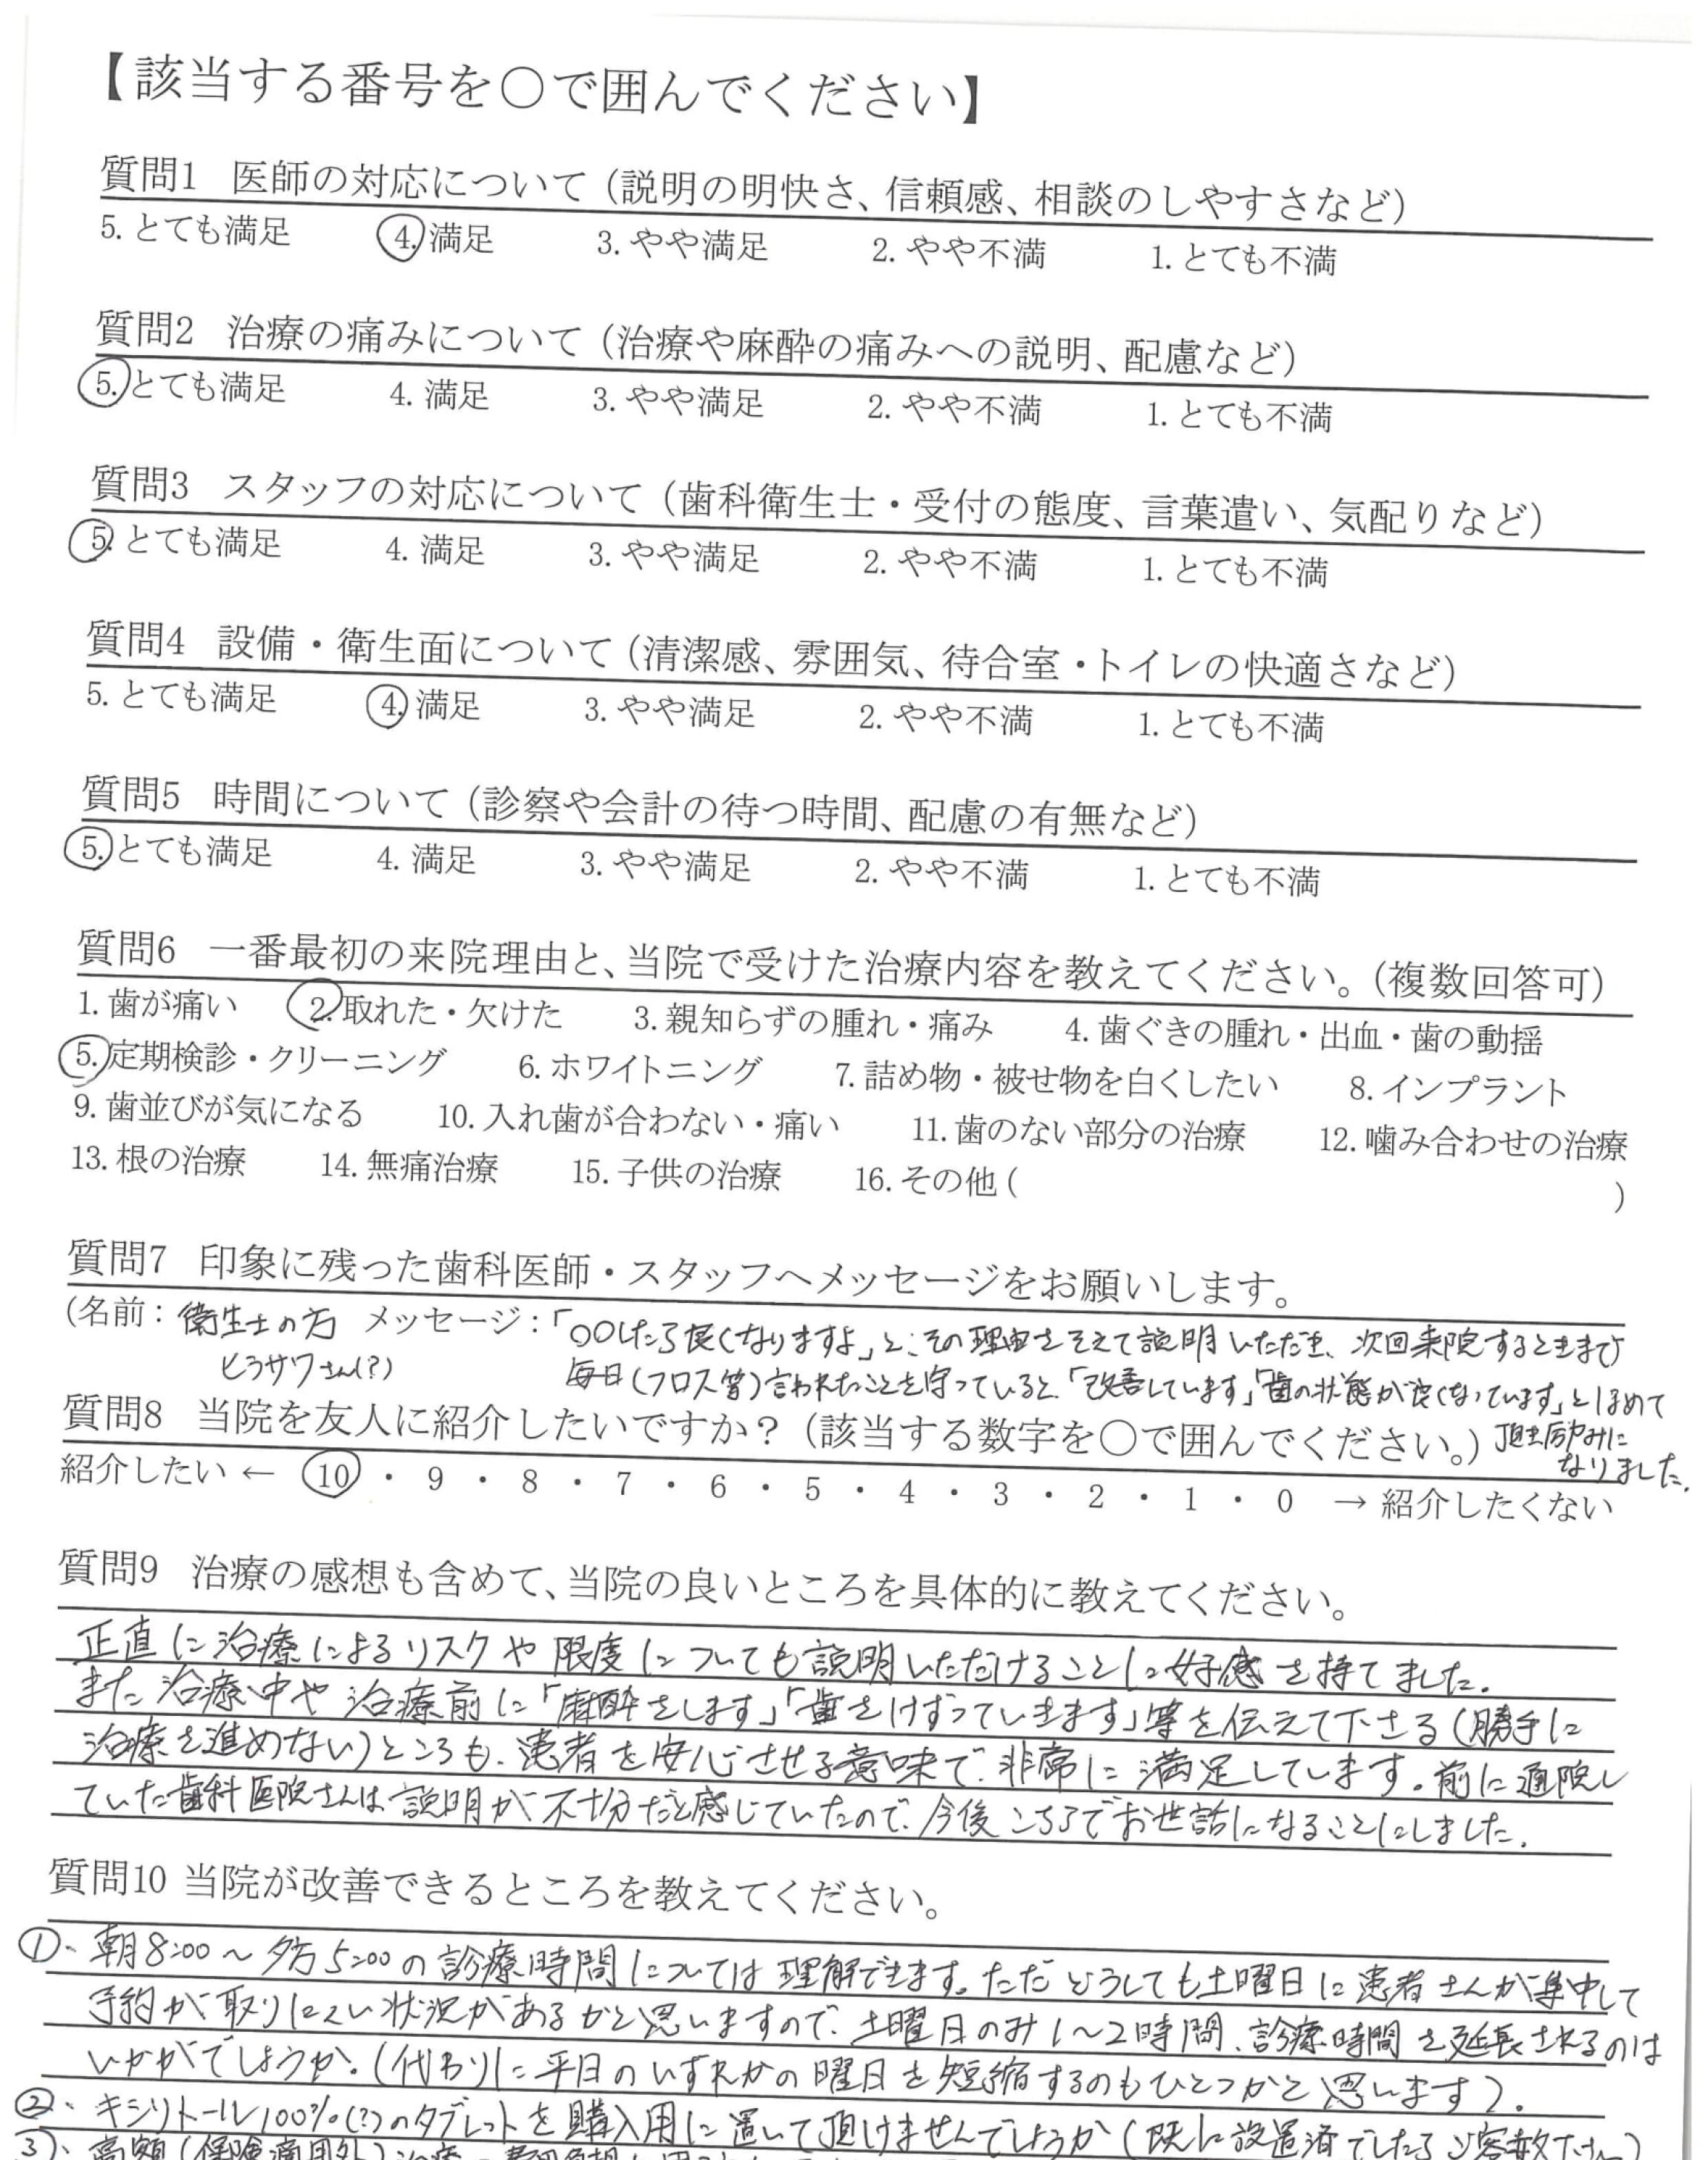 【該当する番号を○で囲んでください】
質問1 医師の対応について（説明の明快さ、信頼感、相談のしやすさなど）
5. とても満足 4. 満足 3. やや満足 2. やや不満 1. とても不満
質問2 治療の痛みについて（治療や麻酔の痛みへの説明、配慮など）
5. とても満足 4. 満足 3. やや満足 2. やや不満 1. とても不満
質問3 スタッフの対応について（歯科衛生士・受付の態度、言葉遣い、気配りなど）
5. とても満足 4. 満足 3. やや満足 2. やや不満 1. とても不満
質問4 設備・衛生面について（清潔感、雰囲気、待合室・トイレの快適さなど）
5. とても満足 4. 満足 3. やや満足 2. やや不満 1. とても不満
質問5 時間について（診察や会計の待つ時間、配慮の有無など）
5. とても満足 4. 満足 3. やや満足 2. やや不満 1. とても不満
質問6 一番最初の来院理由と、当院で受けた治療内容を教えてください。（複数回答可）
1. 歯が痛い 2. 取れた・欠けた 3. 親知らずの腫れ・痛み 4. 歯ぐきの腫れ・出血・歯の動揺
5. 定期検診・クリーニング 6. ホワイトニング 7. 詰め物・被せ物を白くしたい 8. インプラント
9. 歯並びが気になる 10. 入れ歯が合わない・痛い 11. 歯のない部分の治療 12. 噛み合わせの治療
13. 根の治療 14. 無痛治療 15. 子供の治療 16. その他 ( )
質問7 印象に残った歯科医師・スタッフへメッセージをお願いします。
（名前：衛生士の方 メッセージ：「○○したら良くなりますよ」と、その理由をそえて説明いただき、次回来院するときまで
ヒラサワさん(?) 毎日（フロス等）言われたことを守っていると、「改善しています」「歯の状態が良くなっています」とほめて
頂き励みに
なりました。
質問8 当院を友人に紹介したいですか？（該当する数字を○で囲んでください。）
紹介したい ← 10 ・ 9 ・ 8 ・ 7 ・ 6 ・ 5 ・ 4 ・ 3 ・ 2 ・ 1 ・ 0 → 紹介したくない
質問9 治療の感想も含めて、当院の良いところを具体的に教えてください。
正直に治療によるリスクや限度についても説明いただけることに好感を持てました。
また治療中や治療前に「麻酔をします」「歯をけずっていきます」等を伝えて下さる（勝手に
治療を進めない）ところも、患者を安心させる意味で、非常に満足しています。前に通院し
ていた歯科医院さんは説明が不十分だと感じていたので、今後こちらでお世話になることにしました。
質問10 当院が改善できるところを教えてください。
①、朝8:00～夕方5:00の診療時間については理解できます。ただどうしても土曜日に患者さんが集中して
予約が取りにくい状況があるかと思いますので、土曜日のみ1～2時間、診療時間を延長されるのは
いかがでしょうか。（代わりに平日のいずれかの曜日を短縮するのもひとつかと思います）。
②、キシリトール100%(?)のタブレットを購入用に置いて頂けませんでしょうか（既に設置済でしたらご容赦下さい）
③、高額（保険適用外）治療